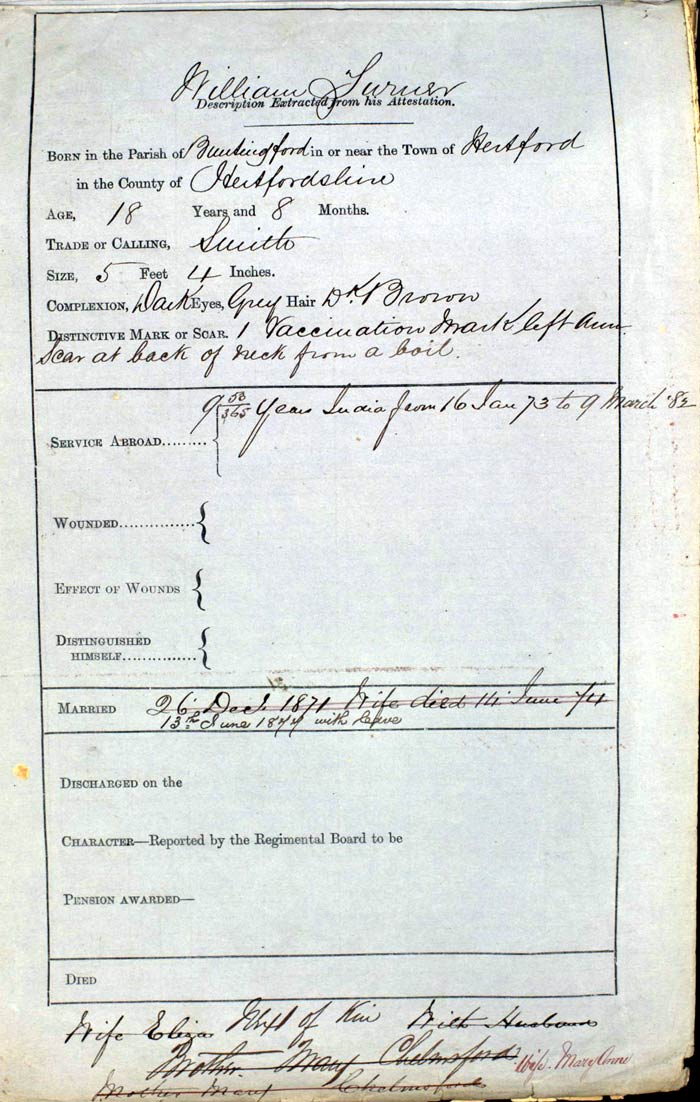 William Turner
Description Extracted from his Attestation.
BORN in the Parish of Buntingford in or near the Town of Hertford
in the County of Hertfordshire
AGE, 18 Years and 8 Months.
TRADE OR CALLING, Smith
SIZE, 5 Feet 4 Inches.
COMPLEXION, Dark Eyes, Grey Hair Dk Brown
DISTINCTIVE MARK OR SCAR. 1 Vaccination Mark left Arm
Scar at back of neck from a boil.
SERVICE ABROAD......... { 9 53/365 Years India from 16 Jan 73 to 9 March '82
WOUNDED.............. {
EFFECT OF WOUNDS {
DISTINGUISHED
HIMSELF............. {
MARRIED 26 Dec. 1871 Wife died 14 June 74
13th June 1877 with leave
DISCHARGED on the
CHARACTER—Reported by the Regimental Board to be
PENSION AWARDED—
DIED
Wife Eliza Next of Kin With Husband
Mother Mary Chelmsford Wife. Mary Anne
Mother Mary Chelmsford